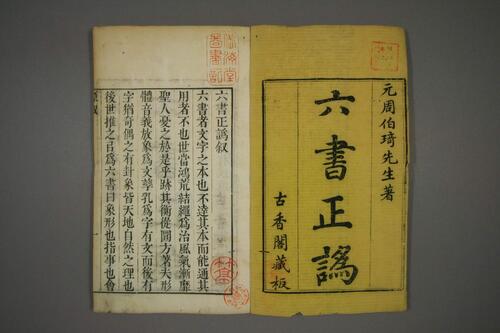 元周伯琦先生著
六書正譌
古香閣藏板
六書正譌叙
六書者文字之本也不達其本而能通其
用者不也世當鴻荒結繩爲治風氣漸靡
聖人憂之於是乎跡其衡從開方著夫形
體音義放象爲文孳乳爲字有文而後有
字猶奇偶之有卦象皆天地自然之理也
後世推之㠯爲六書曰象形也指事也會